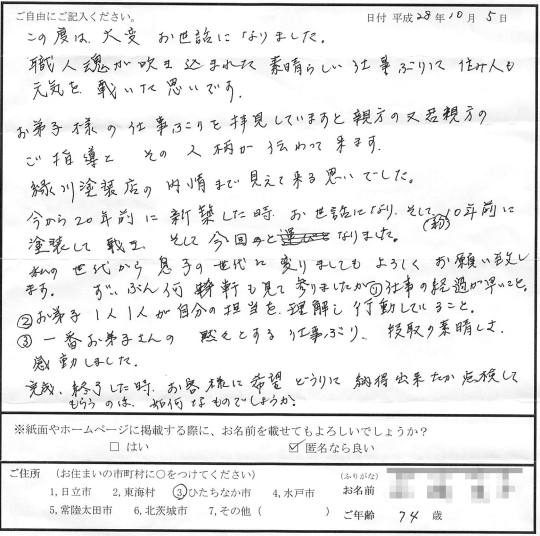 ご自由にご記入ください。 日付 平成28年10月5日
この度は、大変 お世話になりました。
職人魂が吹き込まれた 素晴らしい仕事ぶりに 住み人も
元気を 戴いた思いです。
お弟子様の仕事ぶりを拝見していますと 親方の又君親方の
ご指導と その人柄が伝わって来ます。
縁川塗装店の内情まで見えて来る思いでした。
今から20年前に新築した時 お世話になり、そして(約)10年前に
塗装して戴き、そして今回のと なりました。
私の世代から息子の世代に変りましてもよろしくお願い致し
ます。 ずいぶん何 軒も見て参りましたが①仕事の経過が早いこと。
②お弟子1人1人が自分の担当を理解し行動していること。
③一番お弟子さんの 黙々とする仕事ぶり、 段取り素晴しさ、
感動しました。
完成、終了した時、お客様に希望どうりに納得出来たか点検して
もらうのは、如何なものでしょうか。
※紙面やホームページに掲載する際に、お名前を載せてもよろしいでしょうか?
□ はい ☑ 匿名なら良い
ご住所 (お住まいの市町村に○をつけてください) (ふりがな)
1,日立市 2,東海村 ③ひたちなか市 4,水戸市 お名前
5,常陸太田市 6,北茨城市 7,その他( ) ご年齢 74 歳